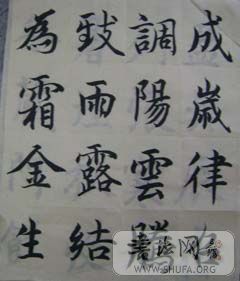 成嵗律
調陽雲騰
致雨露結
為霜金生
書法网
WWW.SHUFA.ORG